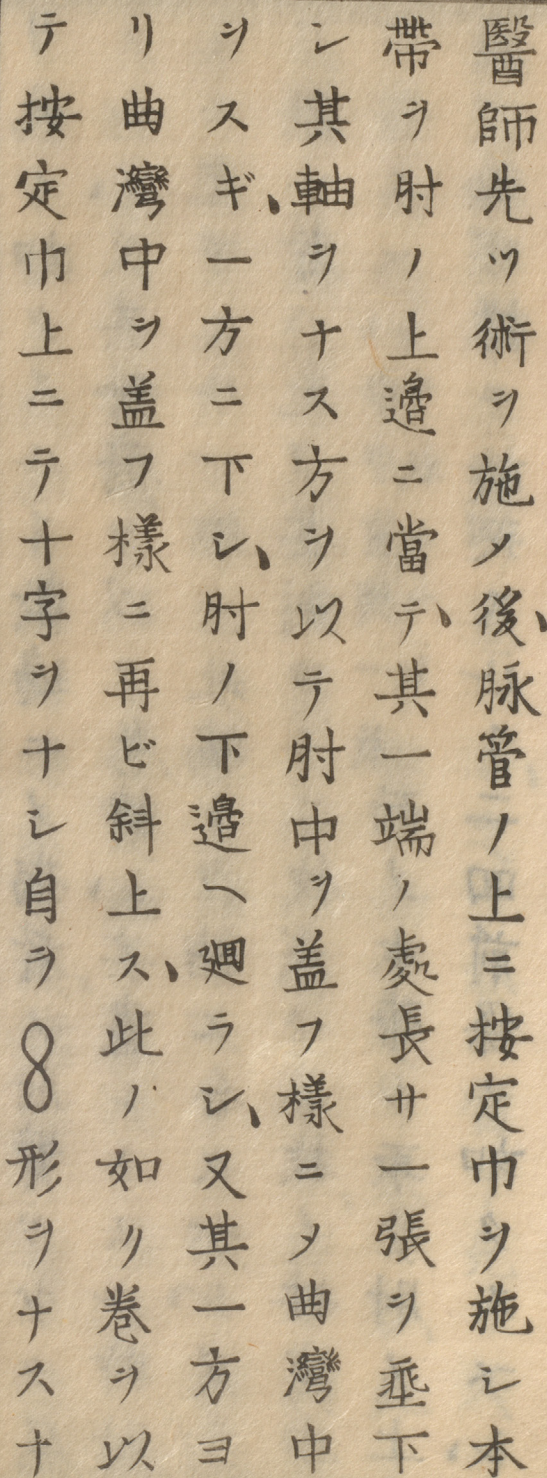 醫師先ツ術ヲ施メ後、脉管ノ上ニ按定巾ヲ施シ本
帶ヲ肘ノ上邉ニ當テ、其一端ノ處長サ一張ヲ埀下
シ其軸ヲナス方ヲ以テ肘中ヲ盖フ樣ニメ曲灣中
ヲスギ、一方ニ下シ、肘ノ下邉ヘ廻ラシ、又其一方ヨ
リ曲灣中ヲ盖フ樣ニ再ビ斜上ス、此ノ如ク巻ヲ以
テ按定巾上ニテ十字ヲナシ自ラ8形ヲナスナ